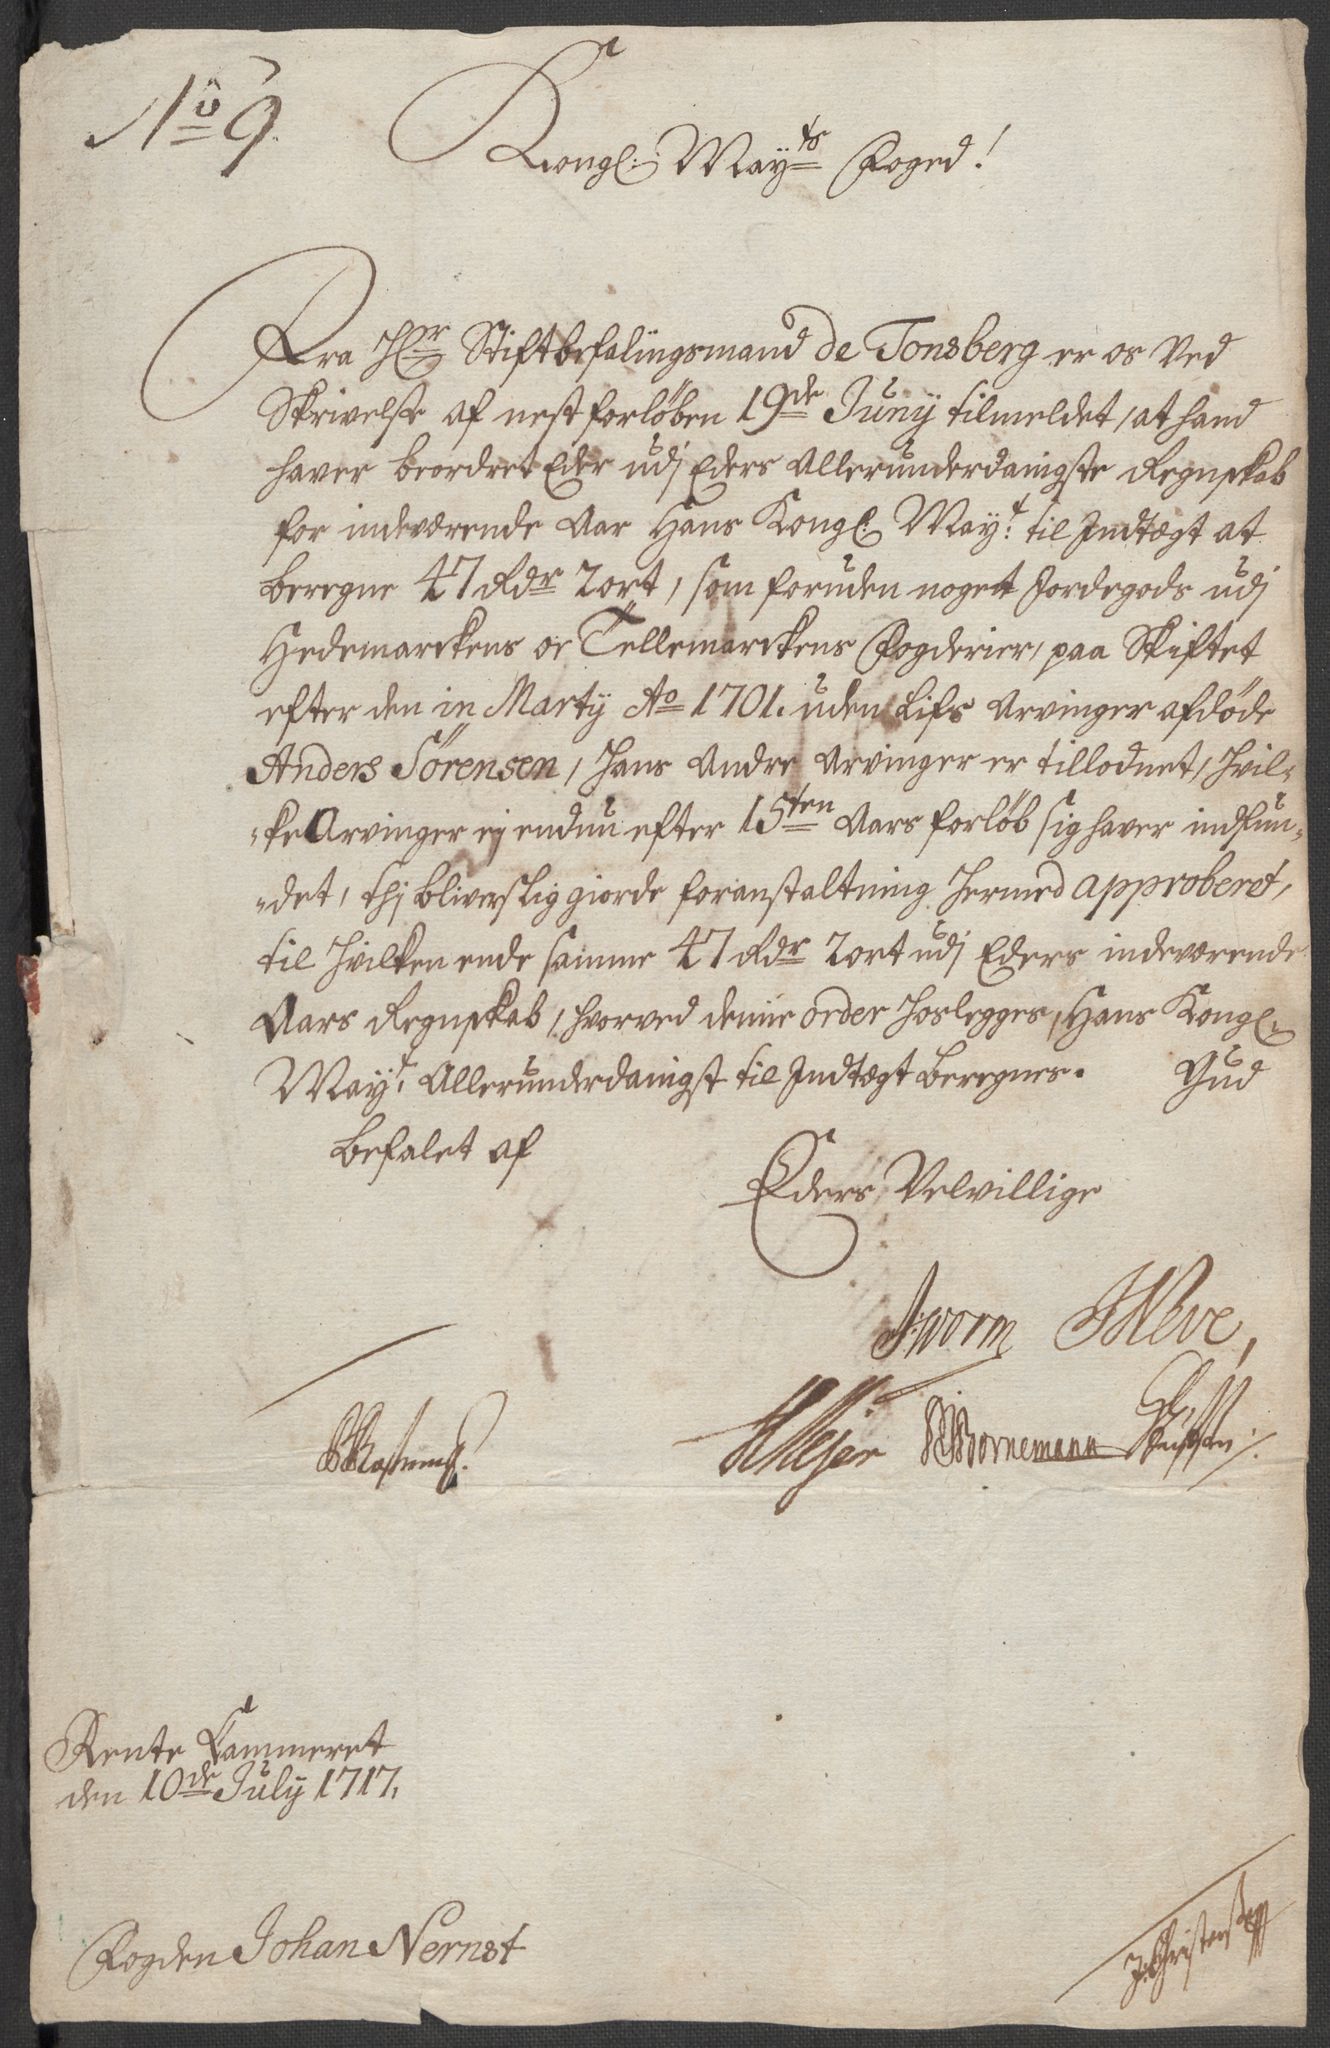 No 9.
Kongl: Mayts Foged!
Fra Hr Stiftbefalingsmand de Tonsberg er os ved
Skrivelse af nest forløben 19de Juny tilmeldet, at hand
haver beordret Eder udj Eders Allerunderdanigste Regnskab
for indeværende Aar Hans Kongl: Mayt: til Indtægt at
beregne 47 Rdr 2 ort, som foruden noget Jordegods udj
Hedemarckens oc Tellemarckens Fogderier, paa Skiftet
efter den in Marty Ao 1701. uden Lifs Arvinger afdøde
Anders Sörensen, hans Andre Arvinger er tillodnet, hvil-
-ke Arvinger ej endnu efter 15ten Aars forløb sig haver indfun-
-det, thj bliver slig giorde foranstaltning hermed approberet,
til hvilken ende samme 47 Rdr 2 ort udj Eders indeværende
Aars Regnskab, hvorved denne order hoslegges, Hans Kongl:
Mayt: Allerunderdanigst til Indtægt beregnes. Gud
befalet af
Eders Velvillige
A: worm JWeve,
HMejer Bornemann
Rente Cammeret
den 10de July 1717.
Fogden Johan Nernst
J: Christens